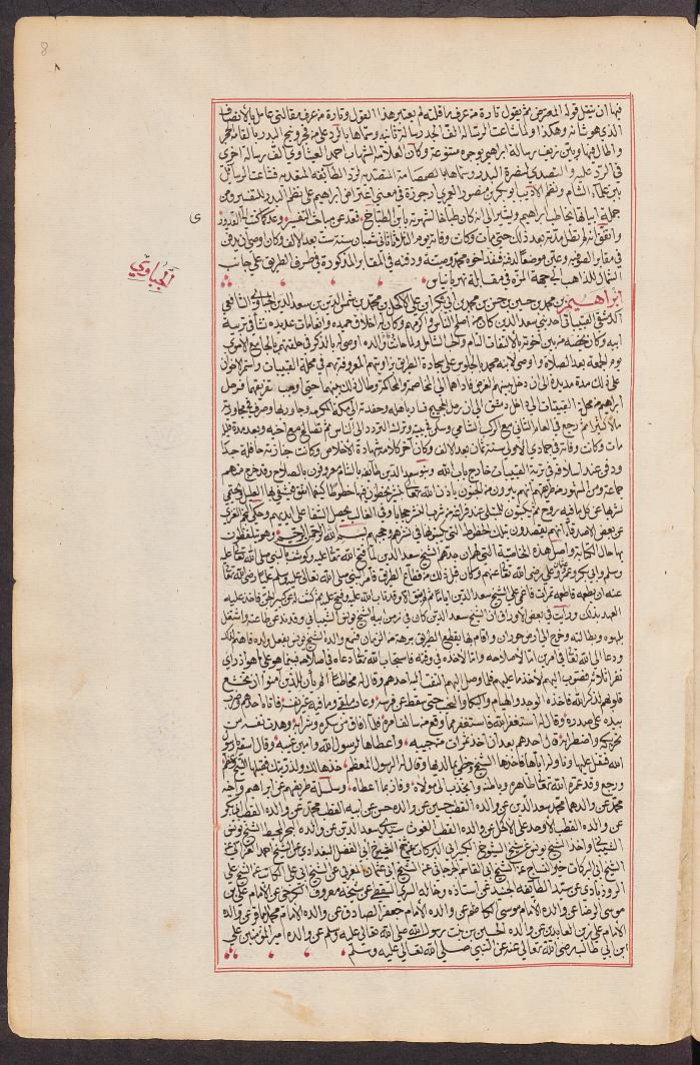 فيها ان ينقل قوله المعترض ثم يقول تارة من عرف ما قلته لم يعبأ بهذا القول وتارة من عرف مقالتي عامل بالانصاف
الذي هو شانه وهكذا ولما شاعت الرسالة الف البدر رسالة ثانية وسماها بالرد على من فجر ونبح البدر بالقامه الحجر
واطال فيها وبين تزييف رسالة ابراهيم بوجوه متنوعة وكان العلامة الشهاب احمد العيثاوي الف رسالة اخرى
في الرد عليه والتصدي لنصرة البدر وسماها بالصمصامة المتصدية لرد الطائفة المتعدية فشاعت الرسائل
بين علماء الشام ونظم الاديب ابو بكر بن منصور العمري ارجوزة في معنى اعتراض ابراهيم على نظم البدر للتفسير ومن
جملة ابياتها يخاطب ابراهيم ويشير الى انه كان طباخا لشهرته بابن الطباخ فعد عن مباحث التفسير وعد كما كنت الى القدور
واتفق انه لم تطل مدته بعد ذلك حتى مات وكانت وفاته يوم الثلاثا ثاني شعبان سنة ست بعد الالف وكان اوصى ان يدفن
في مقابر الصوفية وعين موضعا لدفنه فنفذ اخوه محمد وصيته ودفنه في المقابر المذكورة في طرف الطريق على جانب
الشمال للذاهب الى جهة المزة في مقابلة نهر بانياس
ابراهيم بن محمد بن حسين بن حسن بن محمد بن ابي بكر بن علي الاكحل بن محمد بن شمس الدين بن سعد الدين الجباوي الشافعي
الدمشقي القبيباتي احد بني سعد الدين كان من اصلح الناس واكرمهم وكان له اخلاق حميدة وانعامات عديدة نشأ في تربية
ابيه وكان يخصه من بين اخوته بالالتفات التام والحب الشامل ولما مات والده اوصى له بالذكر في حلقتهم بالجامع الاموي
يوم الجمعة بعد الصلاة واوصى لابنه محمد بالجلوس على سجادة الطريق بزاويتهم المعروفة بهم في محلة القبيبات واستمر الاخوان
على ذلك مدة مديدة الى ان دخل بينهم الغرض فاداهما الى المخاصمة والمحاكمة وطال ذلك بينهما حتى اوجب تفرقهما فرحل
ابراهيم من محلة القبيبات الى داخل دمشق الى ان رحل للحج فسار باهله وحفدته الى مكة المكرمه وجاور بها وصرف في مجاورته
مالا كثيرا ثم رجع في العام الثاني مع الركب الشامي وسكن في بيته وترك التردد الى الناس ثم تصالح مع اخيه وبعد مدة قليلة
مات وكانت وفاته في جمادي الاولى سنة ثمان بعد الالف وكان اخر كلامه شهادة الاخلاص وكانت جنازته حافلة جدا
ودفن عند اسلافه في تربة القبيبات خارج باب الله وبنو سعد الدين طائفة بالشام معروفون بالصلاح وقد خرج منهم
جماعة ومن المشهور من طريقهم انهم يبرون من الجنون باذن الله تعالى بنشر يخطون فيها خطوطا كيفما اتفق فيشفى بها العليل ويحتمي
لشربها عن كل ما فيه روح ثم يكتبون للمبتلى عند فراغه من شربها النشر حجابا وفي الغالب يحصل الشفا على ايديهم وحكى النجم الغزي
عن بعض الاصدقاء انهم يقصدون بتلك الخطوط التي يكتبونها في نشرهم وحجبهم بسم الله الرحمن الرحيم وهو يتلفظون
بها حال الكتابة واصل هذه الخاصية التي ظهر بها جدهم الشيخ سعد الدين لما فتح الله تعالى عليه وكوشف بالنبي صلى الله تعالى عليه
وسلم وابي بكر وعمر وعلي رضي الله تعالى عنهم وكان قبل ذلك من قطاع الطريق فامر النبي صلى الله تعالى عليه وسلم عليا رضي الله تعالى
عنه ان يطعمه فاطعمه تمرات فاغمي على الشيخ سعد الدين اياما
العهد بذلك ورايت في بعض الاوراق ان الشيخ سعد الدين كان في زمن ابيه الشيخ يونس الشيباني وقد ند عن طاعته واشتغل
بلهوه وبطالته وخرج الى ارض حوران واقام بها يقطع الطريق برهة من الزمان فسمع والده الشيخ يونس بفعل ولده فاهمه لذلك
ودعا الى الله تعالى في امره اما الاصلاحه واما الاخذه في وقته فاستجاب الله تعالى دعاه في اصلاحه فبينما هو على لهوه اذ راى
نفرا ثلاثة فصوب اليهم لاخذ ما عليهم فلما وصل اليهم التفت اليه احدهم وقال له مخاطبا الم يان للذين آمنوا ان تخشع
قلوبهم لذكر الله فاخذه الوجد والهيام والبكا والنحيب حتى سقط عن فرسه
بيده على صدره وقال له استغفر الله فاستغفر مما وقع منه
واضطرابه قال احدهم بعد ان اخذ تمرات من جيبه واعطاها لرسول الله وامين غيبه وقال اسقه يارسول
الله فتفل عليها وناولها اياها فاخذها الشيخ وحظي بما لديها وقال له الرسول المعظم خذها لك ولذريتك فقبلها الشيخ وعظم
ورجع وقد غمره الله تعالى ظاهره وباطنه وانجذب الى مولاه وفاز بما اعطاه وسلسلة طريقهم عن ابراهيم واخيه
محمد عن والدهما محمد سعد الدين عن والده القطب حسين عن والده حسن عن ابيه القطب محمد عن والده القطب ابي بكر
عن والده القطب الاوحد علي الاكحل عن والده القطب الغوث سيدي سعد الدين عن والده البحر المحيط الشيخ يونس
الشيباني واخذ الشيخ يونس عن شيخ الشيوخ الكبير ابي البركات عن شيخ الشيوخ ابي الفضل البغدادي عن الشيخ احمد الغزالي عن
الشيخ ابي البركات خير النساج عن الشيخ ابي القاسم الجرجاني عن الشيخ ابي عثمان المغربي عن الشيخ ابي علي الكاتب عن الشيخ علي
الروذبادي عن سيد الطائفة الجنيد عن استاذه وخاله السري السقطي عن شيخه معروف الكرخي عن الامام علي بن
موسى الرضا عن والده الامام موسى الكاظم عن والده الامام جعفر الصادق عن والده الامام محمد الباقر عن والده
الامام علي زين العابدين عن والده الحسين بن بنت رسول الله صلى الله تعالى عليه وسلم عن والده امير المؤمنين علي
ابن ابي طالب رضي الله تعالى عنه عن النبي صلى الله تعالى عليه وسلم
الجباوي
ي
8
٨